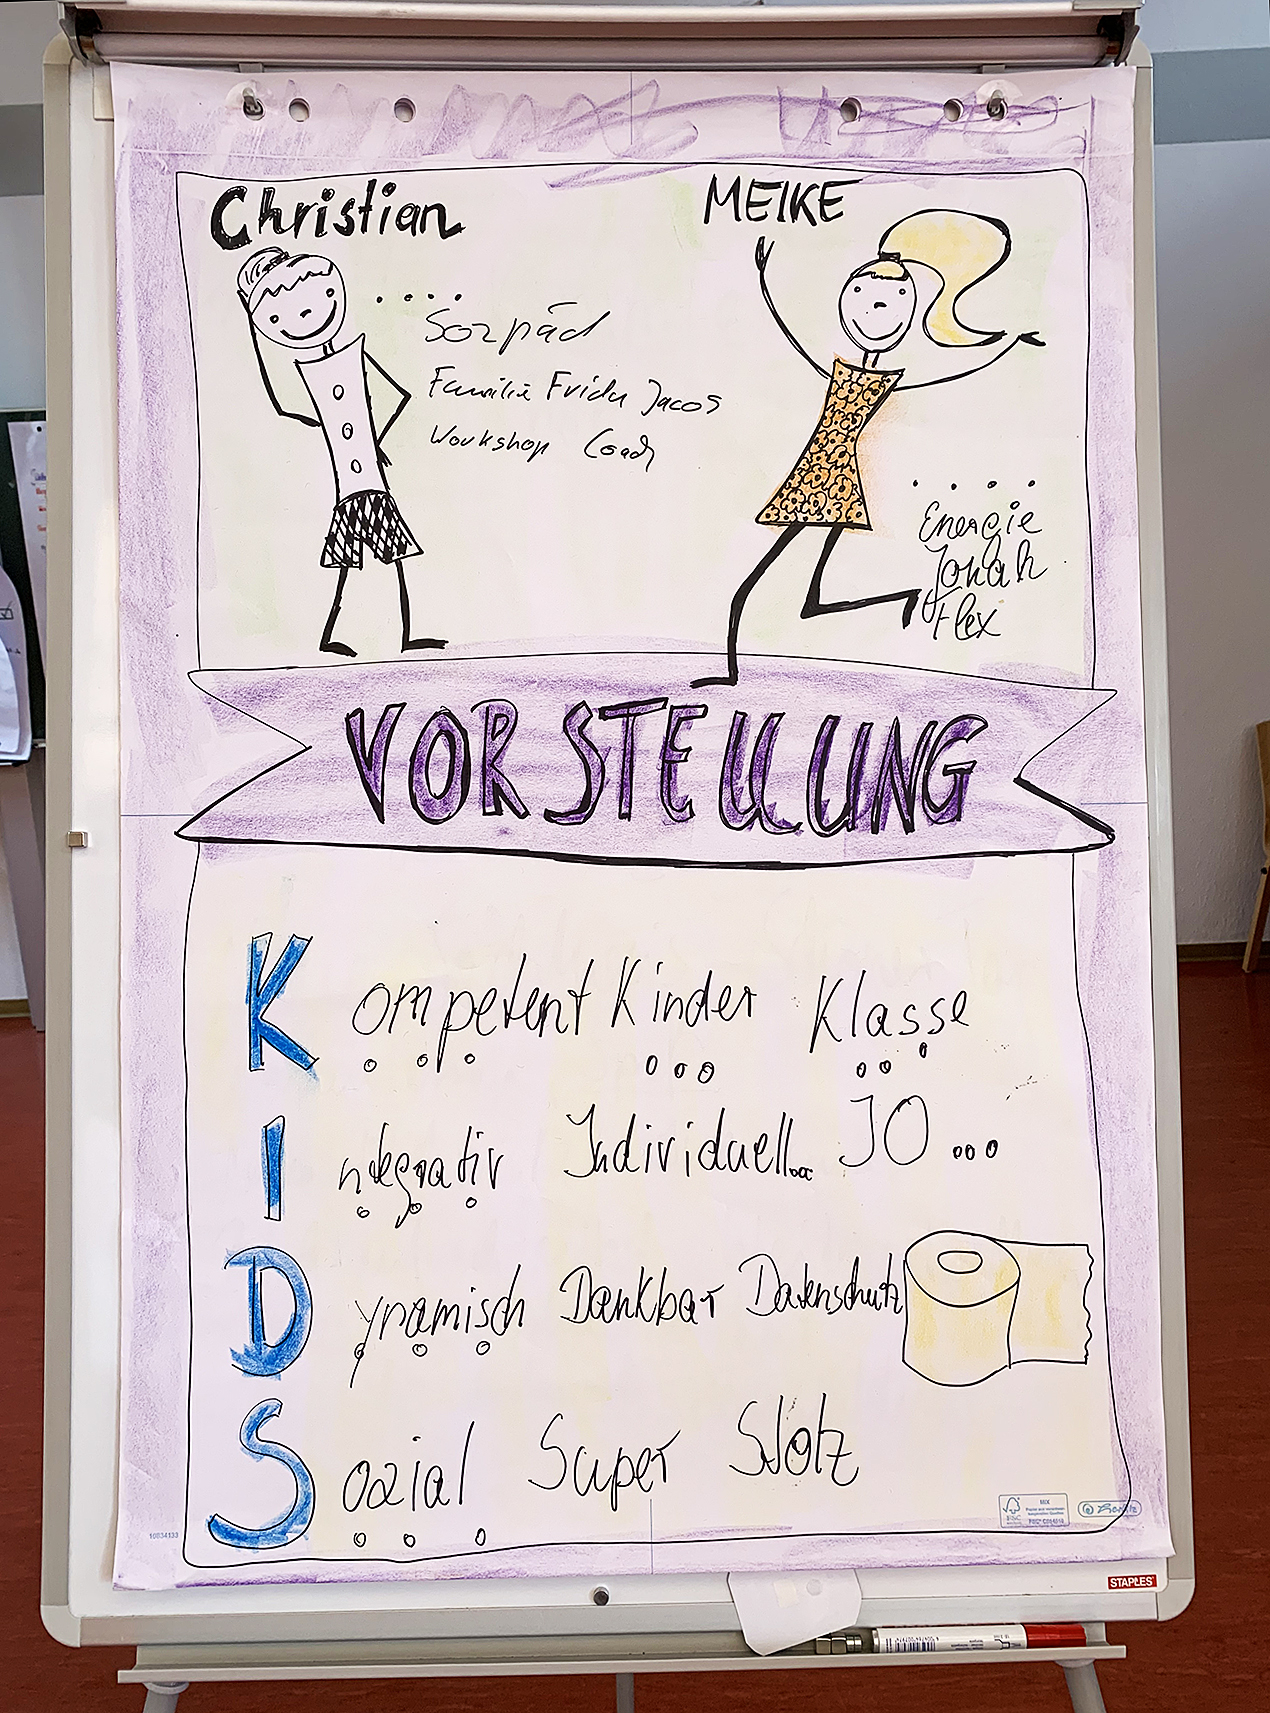 Christian
MEIKE
....
Sozpäd
Familie Frida Jacos
Workshop Coach
....
Energie
Jonah
Flex
VORSTELLUNG
Kompetent Kinder Klasse
Integrativ Individuell... JO...
Dynamisch Dankbar Datenschutz
Sozial Super Stolz
MIX
10834133
STAPLES